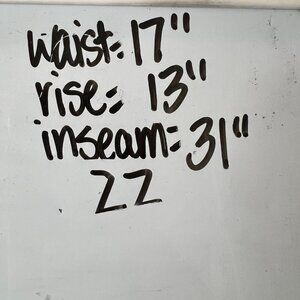 waist: 17"
rise: 13"
inseam: 31"
22